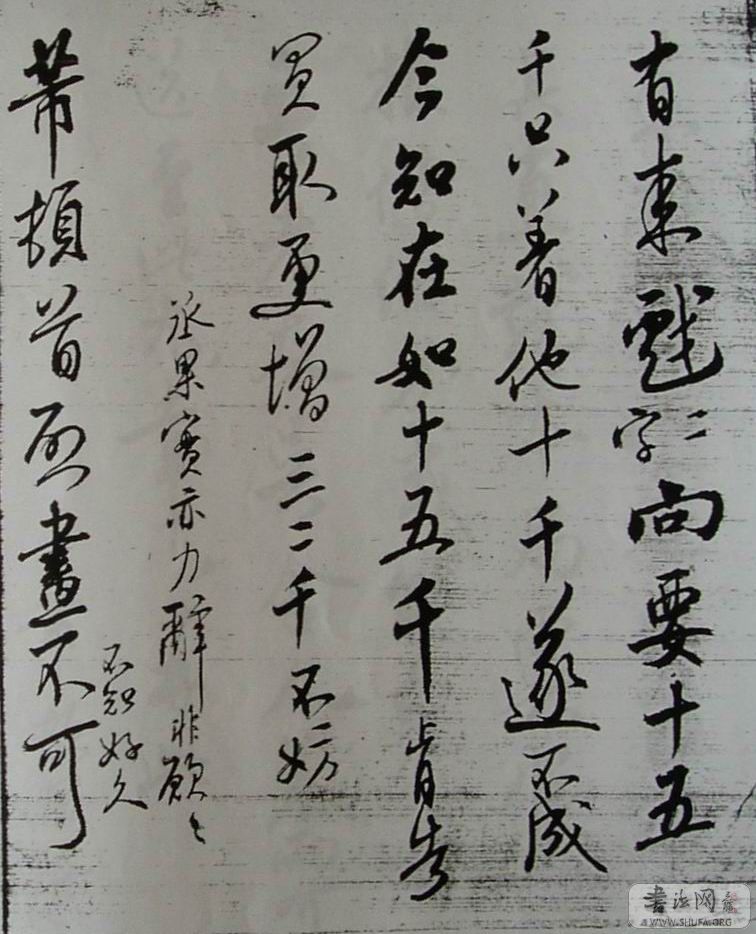 有来戲二字向要十五
千只着他十千遂不成
今知在如十五千肯告
買取更增三二千不妨
丞果實亦力辭非願〻
不知好久
芾頓首 畫不可
書法网
WWW.SHUFA.ORG